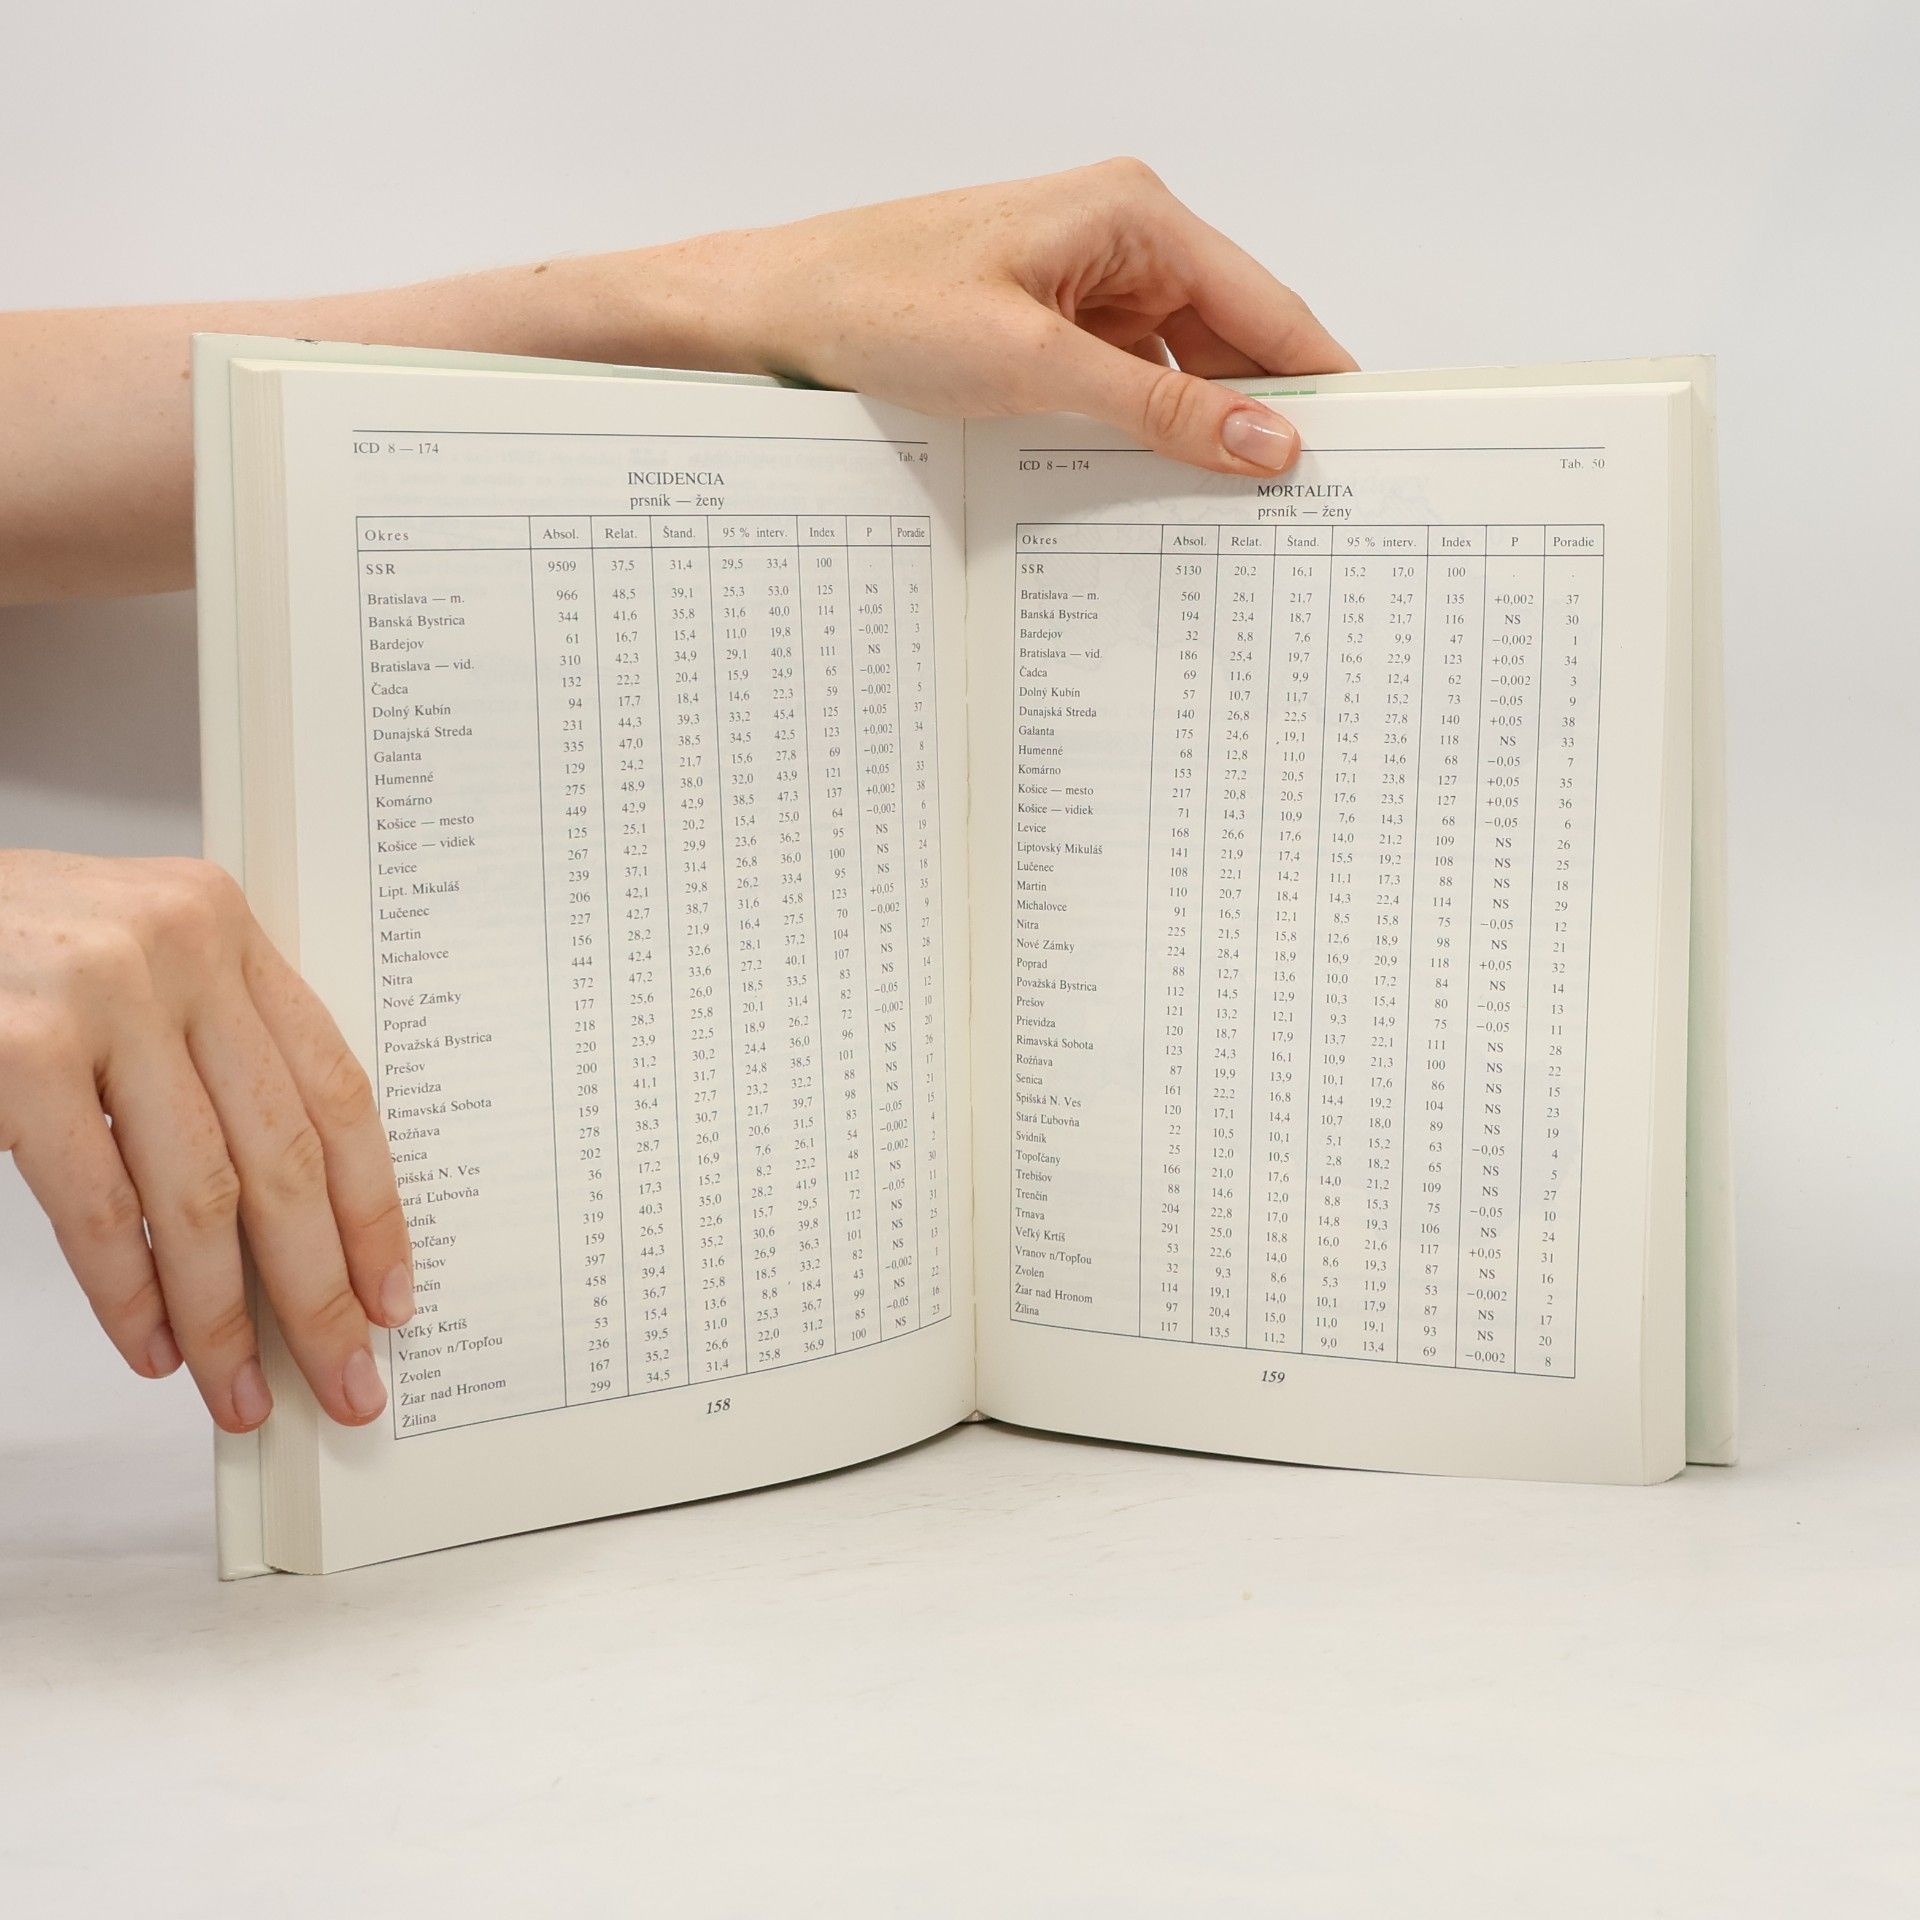 ICD 8 — 174
Tab. 49
INCIDENCIA
prsník — ženy
Okres Absol. Relat. Štand. 95 % interv. Index P Poradie
SSR 9509 37,5 31,4 29,5 33,4 100 . .
Bratislava — m. 966 48,5 39,1 25,3 53,0 125 NS 36
Banská Bystrica 344 41,6 35,8 31,6 40,0 114 +0,05 32
Bardejov 61 16,7 15,4 11,0 19,8 49 −0,002 3
Bratislava — vid. 310 42,3 34,9 29,1 40,8 111 NS 29
Čadca 132 22,2 20,4 15,9 24,9 65 −0,002 7
Dolný Kubín 94 17,7 18,4 14,6 22,3 59 −0,002 5
Dunajská Streda 231 44,3 39,3 33,2 45,4 125 +0,05 37
Galanta 335 47,0 38,5 34,5 42,5 123 +0,002 34
Humenné 129 24,2 21,7 15,6 27,8 69 −0,002 8
Komárno 275 48,9 38,0 32,0 43,9 121 +0,05 33
Košice — mesto 449 42,9 42,9 38,5 47,3 137 +0,002 38
Košice — vidiek 125 25,1 20,2 15,4 25,0 64 −0,002 6
Levice 267 42,2 29,9 23,6 36,2 95 NS 19
Lipt. Mikuláš 239 37,1 31,4 26,8 36,0 100 NS 24
Lučenec 206 42,1 29,8 26,2 33,4 95 NS 18
Martin 227 42,7 38,7 31,6 45,8 123 +0,05 35
Michalovce 156 28,2 21,9 16,4 27,5 70 −0,002 9
Nitra 444 42,4 32,6 28,1 37,2 104 NS 27
Nové Zámky 372 47,2 33,6 27,2 40,1 107 NS 28
Poprad 177 25,6 26,0 18,5 33,5 83 NS 14
Považská Bystrica 218 28,3 25,8 20,1 31,4 82 −0,05 12
Prešov 220 23,9 22,5 18,9 26,2 72 −0,002 10
Prievidza 200 31,2 30,2 24,4 36,0 96 NS 20
Rimavská Sobota 208 41,1 31,7 24,8 38,5 101 NS 26
Rožňava 159 36,4 27,7 23,2 32,2 88 NS 17
Senica 278 38,3 30,7 21,7 39,7 98 NS 21
pišská N. Ves 202 28,7 26,0 20,6 31,5 83 −0,05 15
tará Ľubovňa 36 17,2 16,9 7,6 26,1 54 −0,002 4
idník 36 17,3 15,2 8,2 22,2 48 −0,002 2
poľčany 319 40,3 35,0 28,2 41,9 112 NS 30
bišov 159 26,5 22,6 15,7 29,5 72 −0,05 11
enčín 397 44,3 35,2 30,6 39,8 112 NS 31
nava 458 39,4 31,6 26,9 36,3 101 NS 25
Veľký Krtíš 86 36,7 25,8 18,5 33,2 82 NS 13
Vranov n/Topľou 53 15,4 13,6 8,8 18,4 43 −0,002 1
Zvolen 236 39,5 31,0 25,3 36,7 99 NS 22
Žiar nad Hronom 167 35,2 26,6 22,0 31,2 85 −0,05 16
Žilina 299 34,5 31,4 25,8 36,9 100 NS 23
158
ICD 8 — 174
Tab. 50
MORTALITA
prsník — ženy
Okres Absol. Relat. Štand. 95 % interv. Index P Poradie
SSR 5130 20,2 16,1 15,2 17,0 100 . .
Bratislava — m. 560 28,1 21,7 18,6 24,7 135 +0,002 37
Banská Bystrica 194 23,4 18,7 15,8 21,7 116 NS 30
Bardejov 32 8,8 7,6 5,2 9,9 47 −0,002 1
Bratislava — vid. 186 25,4 19,7 16,6 22,9 123 +0,05 34
Čadca 69 11,6 9,9 7,5 12,4 62 −0,002 3
Dolný Kubín 57 10,7 11,7 8,1 15,2 73 −0,05 9
Dunajská Streda 140 26,8 22,5 17,3 27,8 140 +0,05 38
Galanta 175 24,6 19,1 14,5 23,6 118 NS 33
Humenné 68 12,8 11,0 7,4 14,6 68 −0,05 7
Komárno 153 27,2 20,5 17,1 23,8 127 +0,05 35
Košice — mesto 217 20,8 20,5 17,6 23,5 127 +0,05 36
Košice — vidiek 71 14,3 10,9 7,6 14,3 68 −0,05 6
Levice 168 26,6 17,6 14,0 21,2 109 NS 26
Liptovský Mikuláš 141 21,9 17,4 15,5 19,2 108 NS 25
Lučenec 108 22,1 14,2 11,1 17,3 88 NS 18
Martin 110 20,7 18,4 14,3 22,4 114 NS 29
Michalovce 91 16,5 12,1 8,5 15,8 75 −0,05 12
Nitra 225 21,5 15,8 12,6 18,9 98 NS 21
Nové Zámky 224 28,4 18,9 16,9 20,9 118 +0,05 32
Poprad 88 12,7 13,6 10,0 17,2 84 NS 14
Považská Bystrica 112 14,5 12,9 10,3 15,4 80 −0,05 13
Prešov 121 13,2 12,1 9,3 14,9 75 −0,05 11
Prievidza 120 18,7 17,9 13,7 22,1 111 NS 28
Rimavská Sobota 123 24,3 16,1 10,9 21,3 100 NS 22
Rožňava 87 19,9 13,9 10,1 17,6 86 NS 15
Senica 161 22,2 16,8 14,4 19,2 104 NS 23
Spišská N. Ves 120 17,1 14,4 10,7 18,0 89 NS 19
Stará Ľubovňa 22 10,5 10,1 5,1 15,2 63 −0,05 4
Svidník 25 12,0 10,5 2,8 18,2 65 NS 5
Topoľčany 166 21,0 17,6 14,0 21,2 109 NS 27
Trebišov 88 14,6 12,0 8,8 15,3 75 −0,05 10
Trenčín 204 22,8 17,0 14,8 19,3 106 NS 24
Trnava 291 25,0 18,8 16,0 21,6 117 +0,05 31
Veľký Krtíš 53 22,6 14,0 8,6 19,3 87 NS 16
Vranov n/Topľou 32 9,3 8,6 5,3 11,9 53 −0,002 2
Zvolen 114 19,1 14,0 10,1 17,9 87 NS 17
Žiar nad Hronom 97 20,4 15,0 11,0 19,1 93 NS 20
Žilina 117 13,5 11,2 9,0 13,4 69 −0,002 8
159